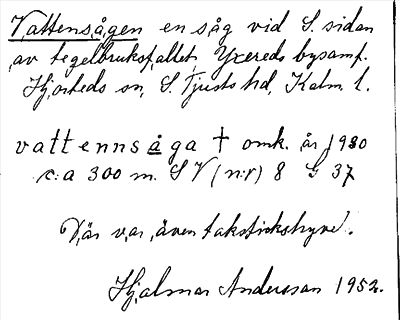 Vattensågen en såg vid S. sidan
av tegelbruksfallet, Yxereds bysamf.
Hjorteds sn, S. Tjusts hd, Kalm. l.
vattennsåga † omk. år 1930
c:a 300 m. S V (n:r) 8 G 37
Där var även takstickshyvel.
Hjalmar Andersson 1952.